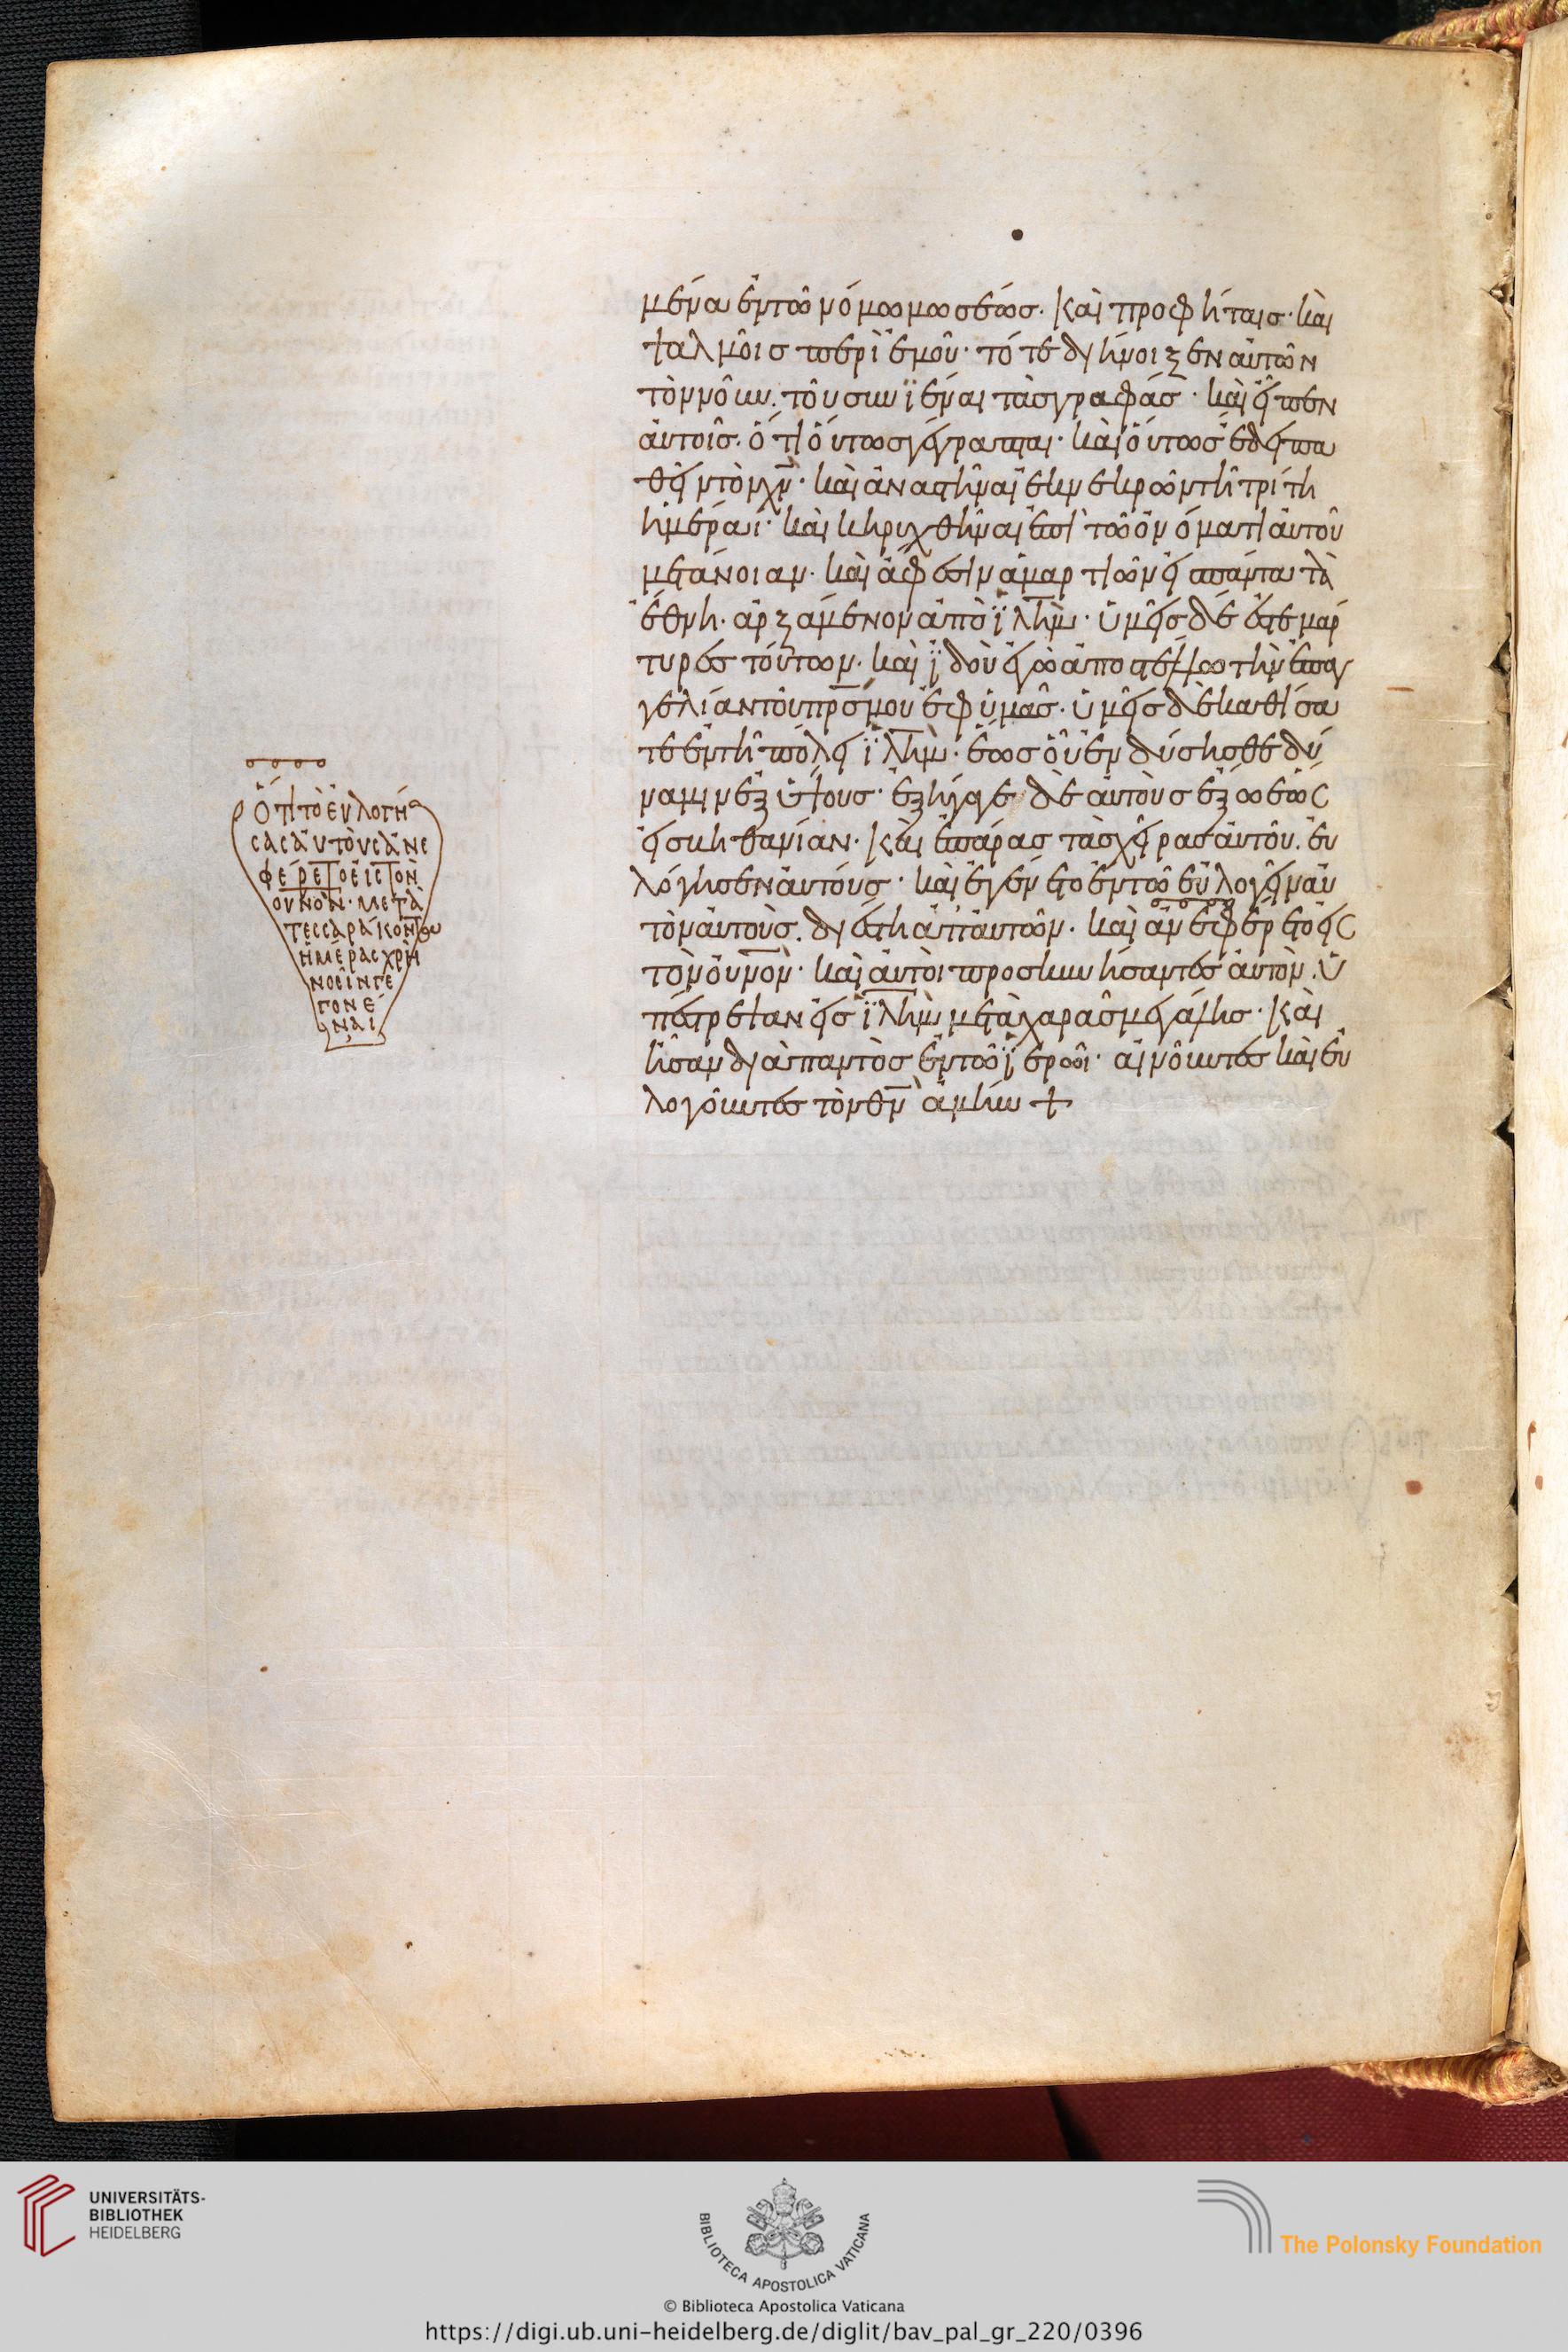 μένα ἐν τῶ νόμω μωσέως· καὶ προφήταις· καὶ
ψαλμοῖς περὶ ἐμοῦ· τότε διήνοιξεν αὐτῶν
τὸν νοῦν. τοῦ συνϊέναι τὰς γραφάς· καὶ εἶπεν
αὐτοῖς· ὅτι οὕτως γέγραπται· καὶ οὕτως ἔδει πα
θεῖν τὸν χν̅· καὶ ἀναστῆναι ἐκ νεκρῶν τῆ τρίτη
ἡμέραι· καὶ κηρυχθῆναι ἐπὶ τῶ ὀνόματι αὐτοῦ
μετάνοιαν· καὶ ἄφεσιν ἁμαρτιῶν εἰς πάντα τὰ
ἔθνη· ἀρξάμενον ἀπὸ ϊλημ̅· ὑμεῖς δέ ἐστε μάρ
τυρες τούτων· καὶ ϊδοὺ ἐγὼ ἀποστέλλω τὴν ἐπαγ
γελίαν τοῦ πρς̅ μου ἐφ ὑμᾶς· ὑμεῖς δὲ καθίσα
τε ἐν τῆ πόλει ϊλημ̅· ἕως οὗ ἐνδύσησθε δύ
ναμιν ἐξ ὕψους· ἐξήγαγε δὲ αὐτοὺς ἔξω ἕως
εἰς βηθανίαν· καὶ ἐπάρας τὰς χεῖρας αὐτοῦ. εὐ
λόγησεν αὐτούς· καὶ ἐγένετο ἐν τῶ εὐλογεῖν αὐ
τὸν αὐτοὺς. διέστη ἀπ' αὐτῶν· καὶ ἀνεφέρετο εἰς
τὸν οὐνον̅· καὶ αὐτοὶ προσκυνήσαντες αὐτὸν. ὑ
πέστρεψαν εἰς ϊλημ̅ μετὰ χαρᾶς μεγάλης· καὶ
ἦσαν διὰ παντὸς ἐν τῶ ϊερῶι· αἰνοῦντες καὶ εὐ
λογοῦντες τὸν θν̅ ἀμήν +
Ὅτι τὸ εὐλογή
σας αὐτοὺς ἀνε
φέρετο εἰς τὸν
ουνον̅· μετὰ
τεσσαράκοντα
ἡμέρας χρὴ
νοεῖν γε
γονέ
ναι
UNIVERSITÄTS-
BIBLIOTHEK
HEIDELBERG
BIBLIOTECA APOSTOLICA VATICANA
The Polonsky Foundation
© Biblioteca Apostolica Vaticana
https://digi.ub.uni-heidelberg.de/diglit/bav_pal_gr_220/0396